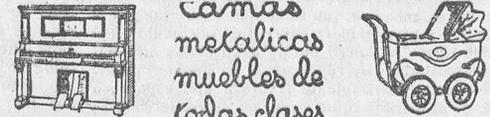 camas
metalicas
muebles de
todas clases